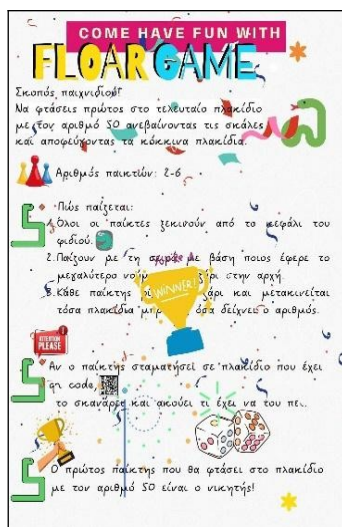 COME HAVE FUN WITH
FLOAR GAME
Σκοπός παιχνιδιού!
Να φτάσεις πρώτος στο τελευταίο πλακίδιο
με τον αριθμό 50 ανεβαίνοντας τις σκάλες
και αποφεύγοντας τα κόκκινα πλακίδια.
Αριθμός παικτών: 2-6
Πώς παίζεται:
1. Όλοι οι παίκτες ξεκινούν από το κεφάλι του
φιδιού.
2. Παίζουν με τη σειρά με βάση ποιος έφερε το
μεγαλύτερο στην αρχή.
3. Κάθε παίκτης ζάρι και μετακινείται
τόσα πλακίδια όσα δείχνει ο αριθμός.
WINNER!
ATTENTION
PLEASE
Αν ο παίκτης σταματήσει σε πλακίδιο που έχει
qr code,
το σκανάρει και ακούει τι έχει να του πει.
Ο πρώτος παίκτης που θα φτάσει στο πλακίδιο
με τον αριθμό 50 είναι ο νικητής!